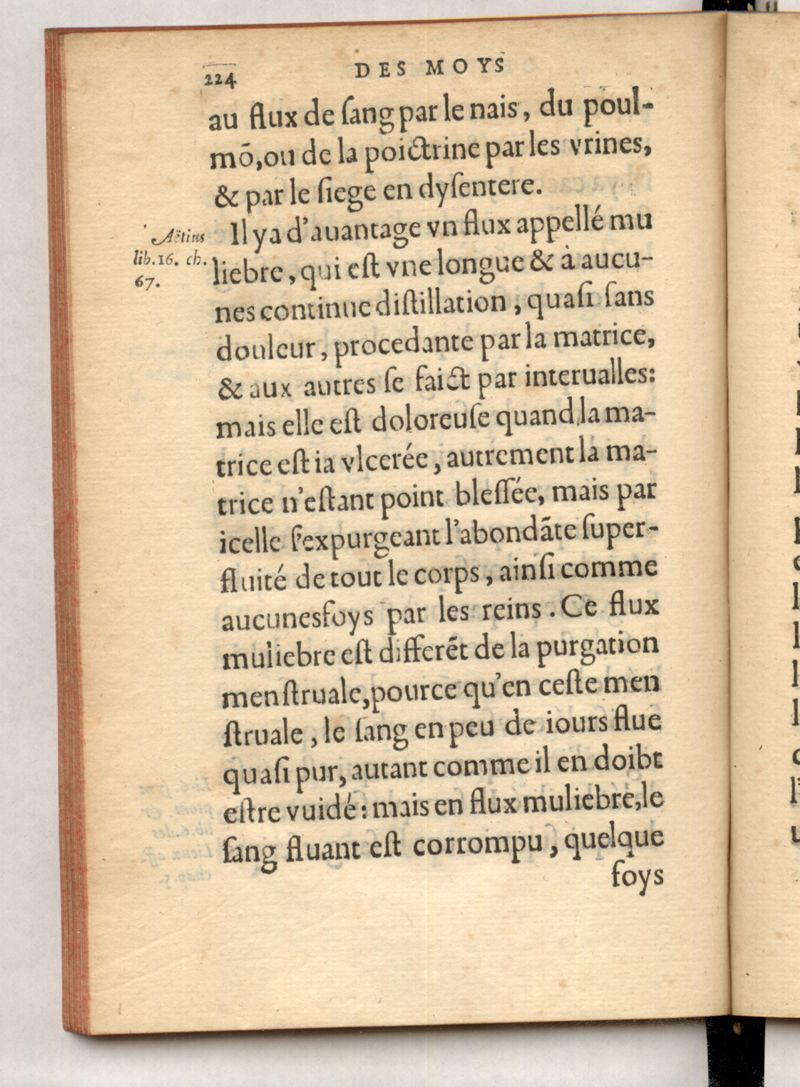 224
DES MOYS
au flux de ſang par le nais, du poul-
mõ, ou de la poictrine par les vrines,
& par le ſiege en dyſentere.
Aëtius
lib.16. ch.
67.
Il ya d'auantage vn flux appellé mu
liebre, qui eſt vne longue & à aucu-
nes continue diſtillation, quaſi ſans
douleur, procedante par la matrice,
& aux autres ſe faict par interualles:
mais elle eſt doloreuſe quand la ma-
trice eſt ia vlcerée, autrement la ma-
trice n'eſtant point bleſſée, mais par
icelle ſ'expurgeant l'abondāte ſuper-
fluité de tout le corps, ainſi comme
aucunesfoys par les reins. Ce flux
muliebre eſt differēt de la purgation
menſtruale, pource qu'en ceſte men
ſtruale, le ſang en peu de iours flue
quaſi pur, autant comme il en doibt
eſtre vuidé: mais en flux muliebre, le
ſang fluant eſt corrompu, quelque
foys